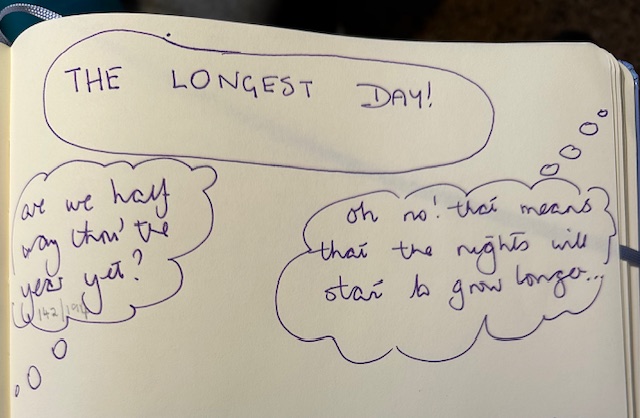 THE LONGEST DAY!
are we half
way thro' the
year yet?
142/191
oh no! that means
that the nights will
start to grow longer...